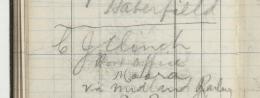 Baterfield
C J Clinch
Post Office
Moora
via Midland Railway